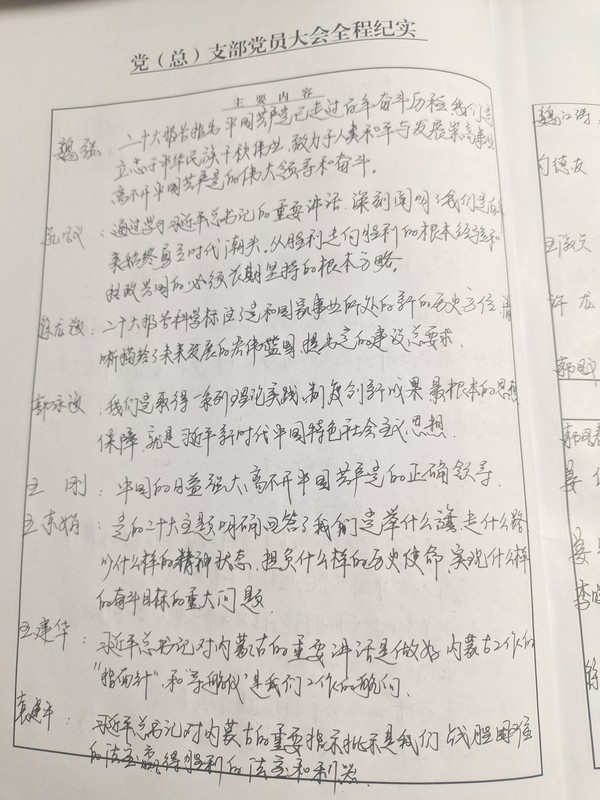 党（总）支部党员大会全程纪实
主 要 内 容
二十大报告指出中国共产党已走过百年奋斗历程.我们党
立志于中华民族千秋伟业,致力于人类和平与发展崇高事业
离不开中国共产党的伟大领导和奋斗。
：通过学习习近平总书记的重要讲话.深刻阐明了我们党
来始终勇立时代潮头.从胜利走向胜利的根本经验和
执政兴国的必须长期坚持的根本方略。
徐龙 ：二十大报告科学标注了党和国家事业所处的新的历史方位.清
晰描绘了未来发展的宏伟蓝图.提出党的建设总要求.
我们党取得一系列理论实践.制度创新成果最根本的思想
保障.就是习近平新时代中国特色社会主义思想.
王 刚：中国的日益强大,离不开中国共产党的正确领导.
王东娟：党的二十大主题明确回答了我们党举什么旗,走什么路
以什么样的精神状态.担负什么样的历史使命.实现什么样
的奋斗目标的重大问题.
王建华：习近平总书记对内蒙古的重要讲话是做好内蒙古工作的
"指南针"和"导航仪"是我们工作的
建平：习近平总书记对内蒙古的重要指示批示是我们战胜困难
的法宝赢得胜利的法宝和利器.
德友
许龙